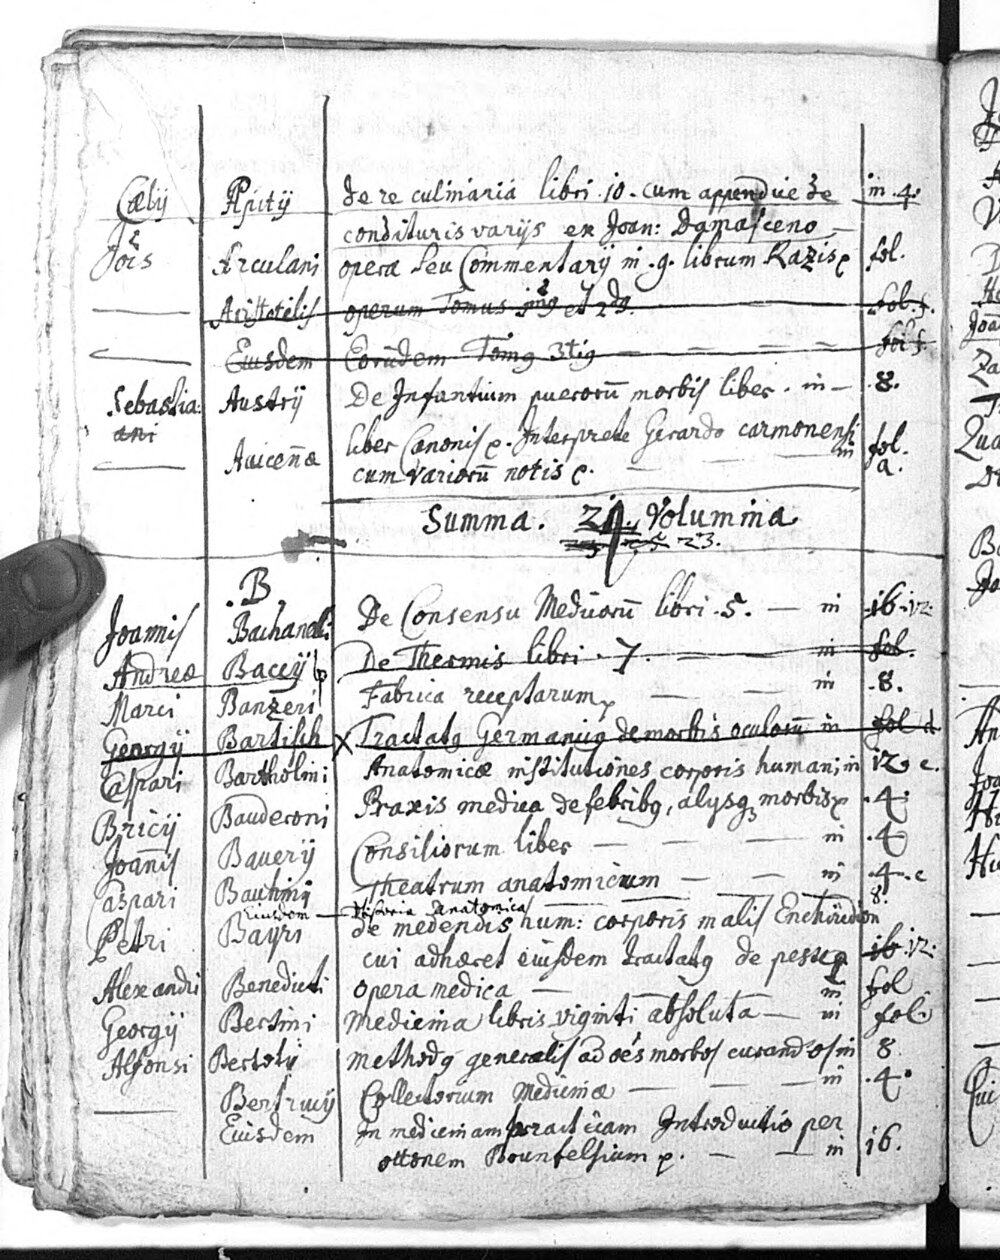 Cælij Apitij de re culinaria libri 10. cum appendice de in 4.
condituris varijs ex Joan: Damasceno
Jois Arculani opera seu Commentarij in .9. librum Razis fol.
Aristotelis operum Tomus et 2dg. fol.
Eiusdem Eorundem Tomg 3tig fol
Sebastia: Austrij De Infantium puerorū morbis liber. in 8.
ani
Auicēnæ liber Canonis Interprete Gerardo carmonensi fol.
cum variorū notis in a.
Summa. Volumina
23.
.B.
Joannis Bachanelli De Consensu Medicorū libri .5. in 16 12.
Andreæ Baccij De Thermis libri .7 in fol.
Marci Banzeri Fabrica receptarum in .8.
Georgij Bartisch X Tractatg Germanicg de morbis oculorū in fol d
Caspari Bartholini Anatomicæ institutiones corporis humani in 12. c.
Bricij Bauderoni Praxis medica de febribg, alysqz morbis .4.
Joanīs Bauerij Consiliorum liber in .4
Caspari Bauhini Theatrum anatomicum in .4. c
Eiusdem Historia Anatomica 8.
Petri Bayri de medendis hum: corporis malis Enchiridion
cui adhæret eiusdem tractatg de peste 16 12.
Alexandri Benedicti opera medica in fol
Georgij Bertini Medicina libris viginti absoluta in fol.
Alfonsi Bertotij methodg generalis ad oēs morbos curandos in 8.
Bertrucij Collectorium Medicinæ in .4.
Eiusdem In medicinam practicam Introductio per
ottonem Brunfelsium in 16.